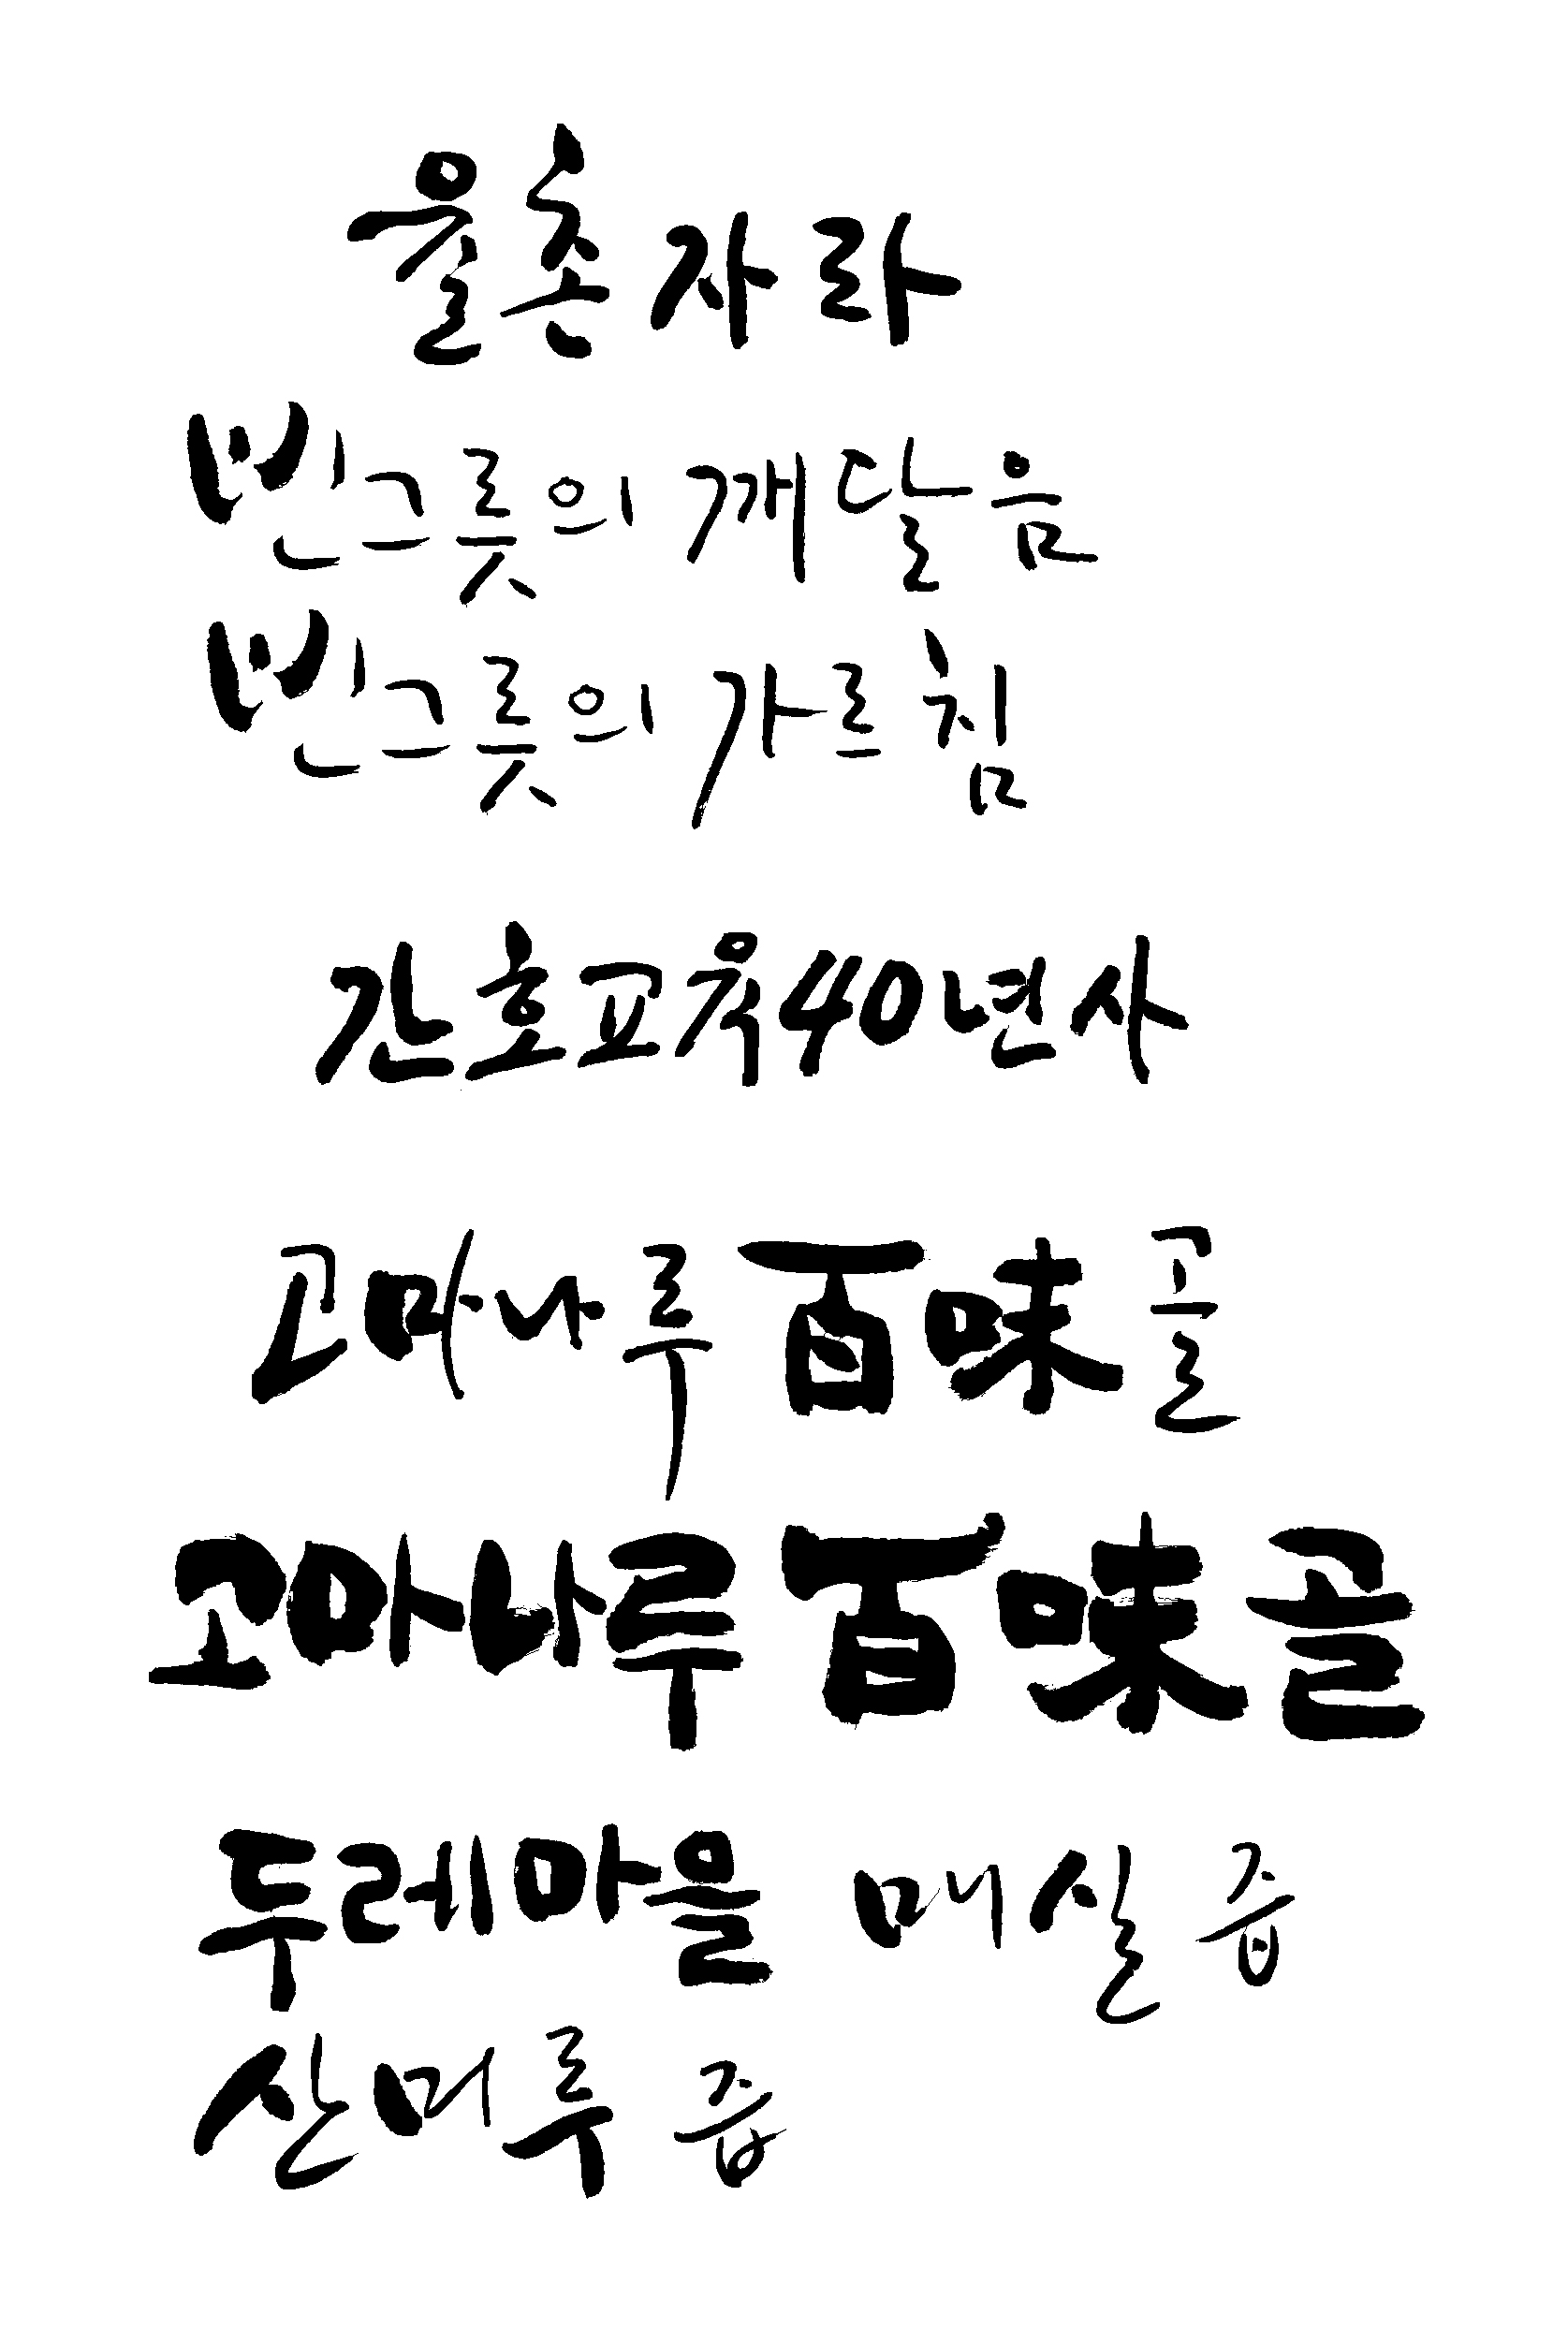 율촌자라
빈그릇의 깨달음
빈그릇의 가르침
간호교육40년사
고마나루 百味골
고마나루 百味골
두레마을 매실즙
산머루즙